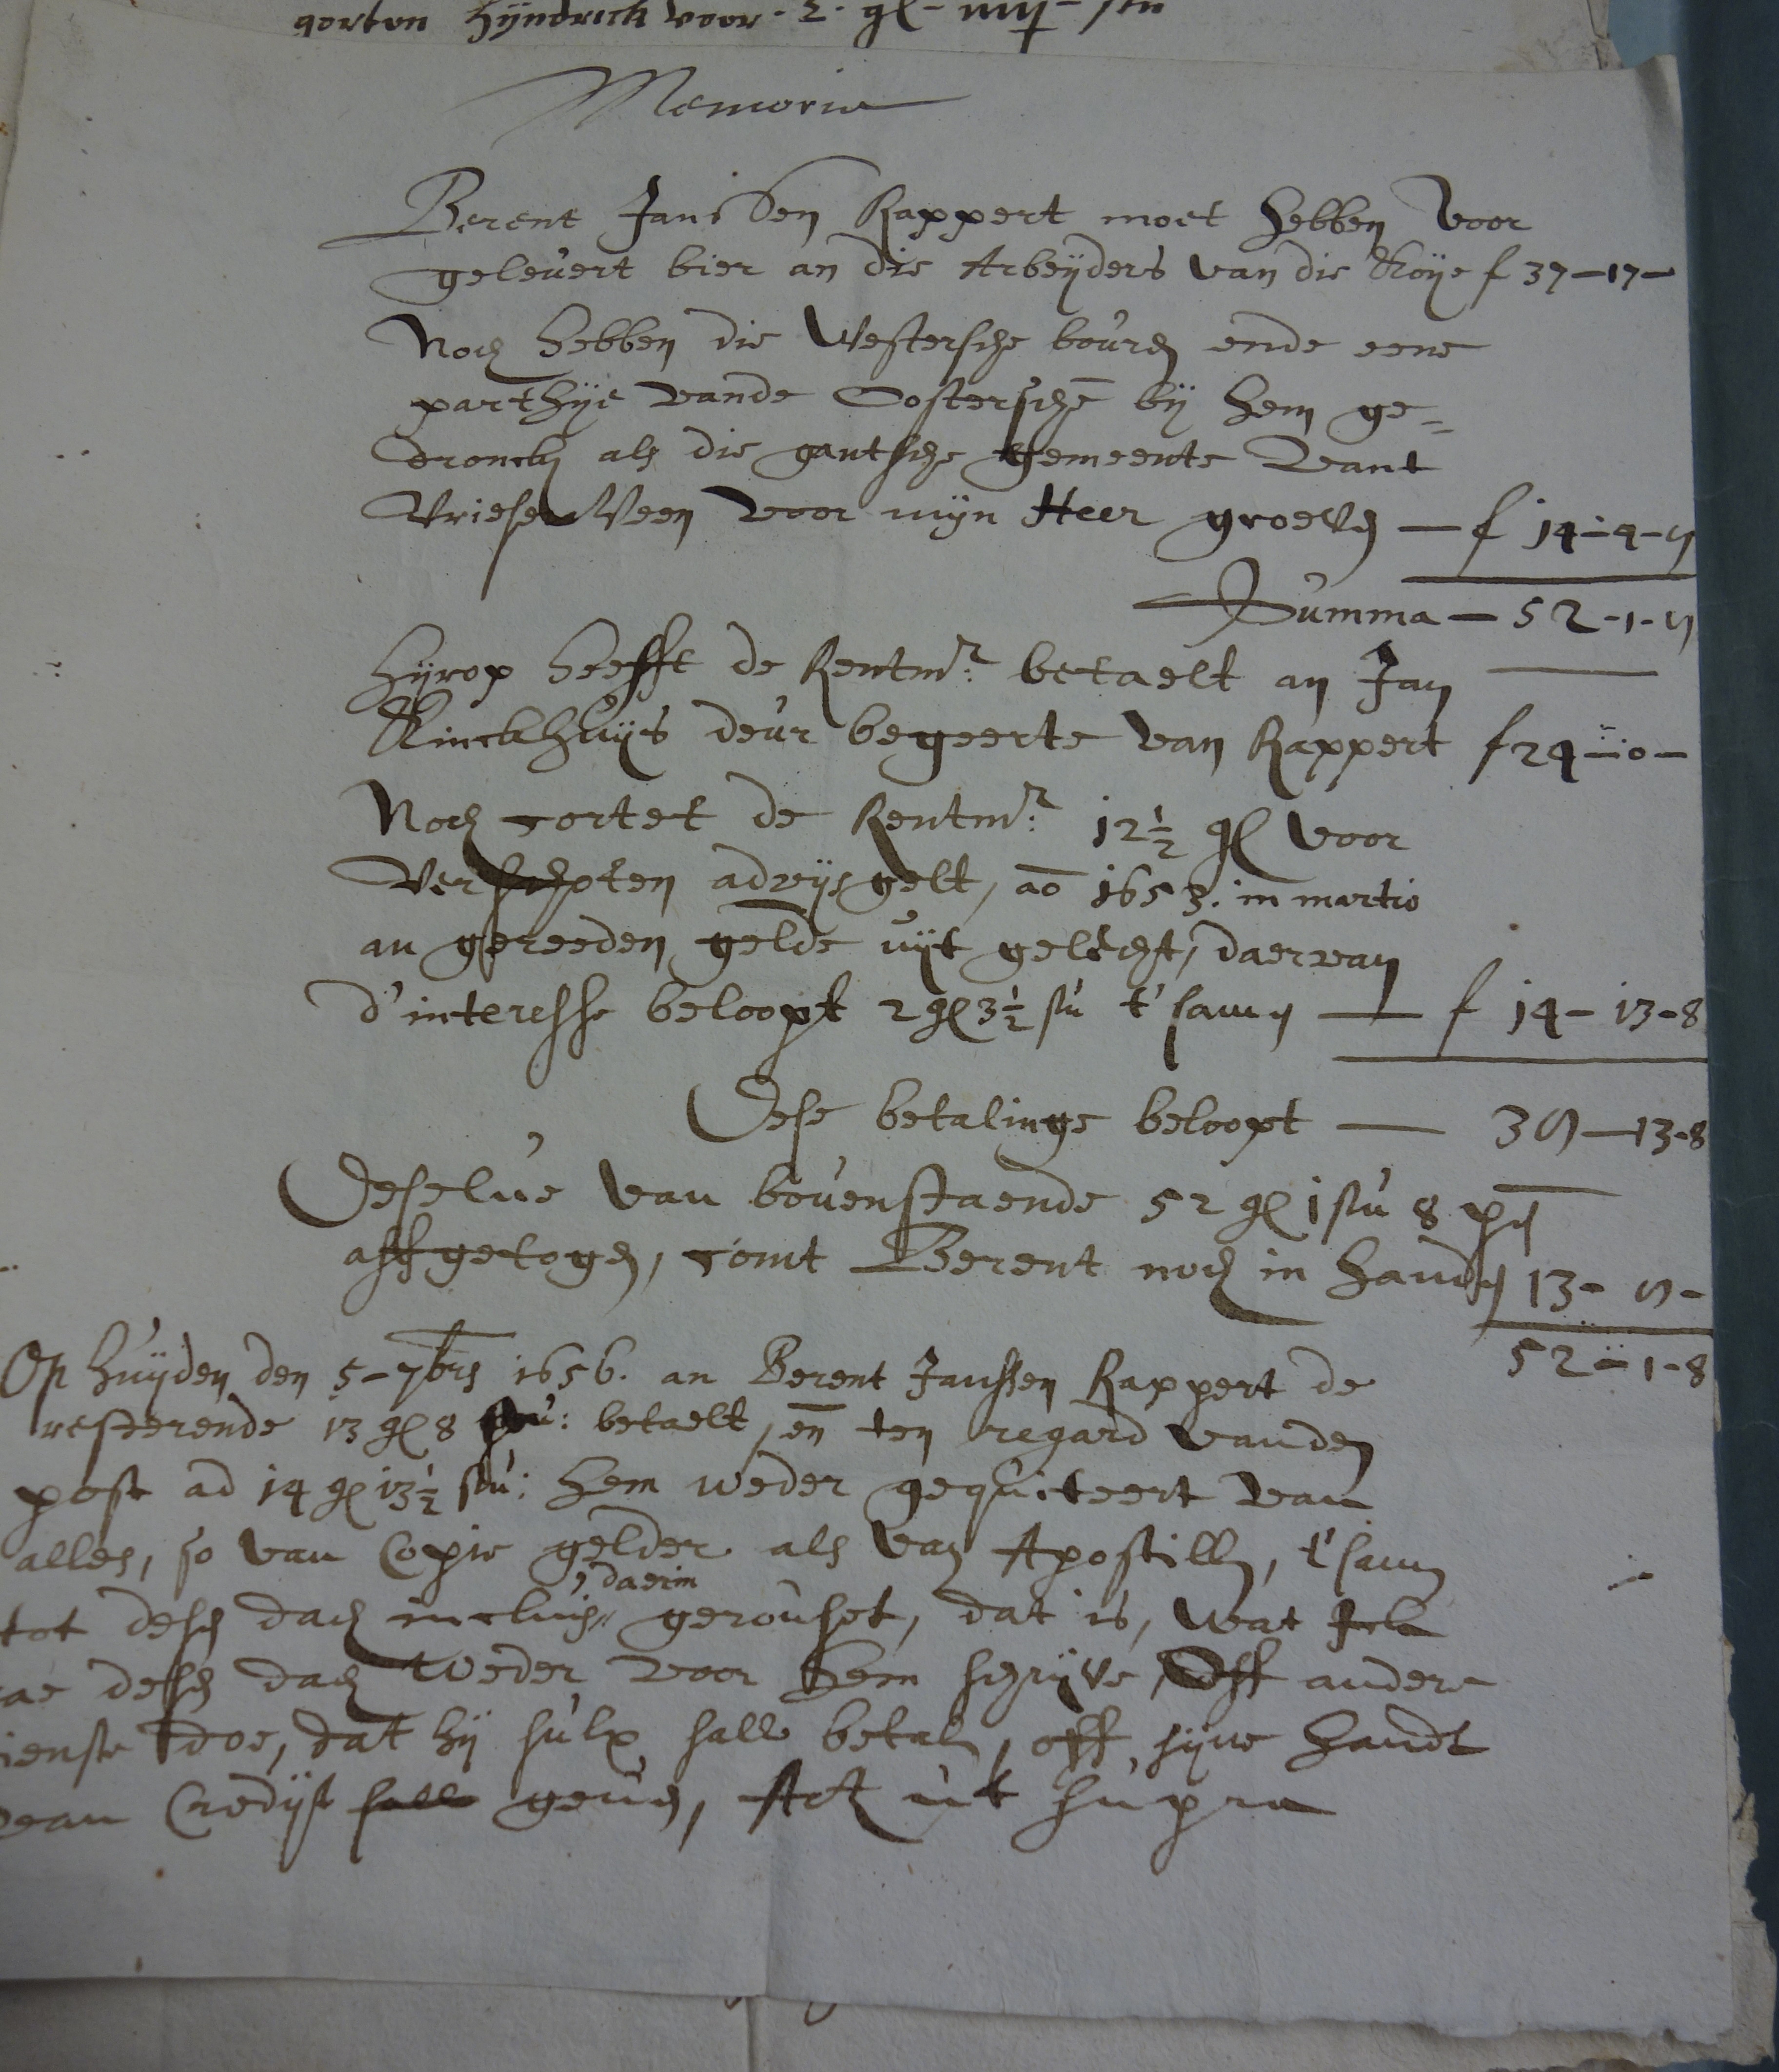 gorten hijndrick voor - 2 - gl - iiij - stu
Memorie
Berent Janssen Rappert moet hebben voor
gelevert bier an die Arbeijders van die Roije f 37-17-
Noch hebben die Westersche bourch ende eene
parthije vande Oostersche bij hem ge=
droncken als die gantsche gemeente vant
Vriesen Veen voor mijn Heer groeven — f 14-4-8
Summa — 52-1-8
Hijrop heefft de Rentmr: betaelt an Jan
Rinckhuijs deur begeerte van Rappert f 24-0-
Noch cortet de Rentmr: 12½ gl voor
verschoten advijs gelt, ao 1653. in martio
an gereeden gelde uijt gelecht, daervan
d'interesse beloopt 2 gl 3½ stu t'samen — f 14-13-8
Dese betalinge beloopt — 38-13-8
Deselve van bovenstaende 52 gl 1 stu 8 pen
affgetogen, comt Berent noch in handen 13-8-
52-1-8
Op huijden den 5-7bris 1656. an Berent Janssen Rappert de
resterende 13 gl 8 stu: betaelt, en ten regard vanden
post ad 14 gl 13½ stu: hem weder gequiteert van
alles, so van Copie gelder als van Apostillen, t'samen
, daerin
tot desen dach incluis gerouset, dat is, wat Ick
nae desen dach weder voor hem schrijve, Off andere
dienste doe, dat hij sulx sall betalen, off sijne handt
van Credijt geven, Act ut supra